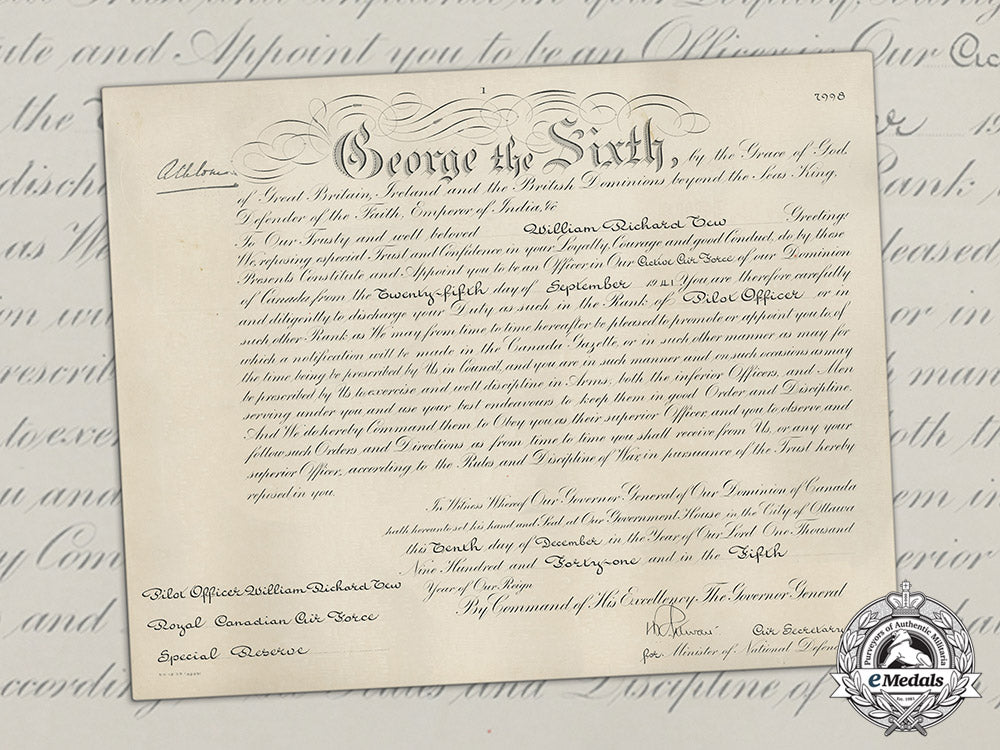 1
7998
Athlone
George the Sixth, by the Grace of God,
of Great Britain, Ireland and the British Dominions beyond the Seas King,
Defender of the Faith, Emperor of India, &c
To Our Trusty and well beloved William Richard Tew Greeting:
We, reposing especial Trust and Confidence in your Loyalty, Courage and good Conduct, do by these
Presents Constitute and Appoint you to be an Officer in Our Active Air Force of our Dominion
of Canada from the Twenty-fifth day of September 1941 You are therefore carefully
and diligently to discharge your Duty as such in the Rank of Pilot Officer or in
such other Rank as We may from time to time hereafter be pleased to promote or appoint you to, of
which a notification will be made in the Canada Gazette, or in such other manner as may for
the time being be prescribed by Us in Council, and you are in such manner and on such occasions as may
be prescribed by Us to exercise and well discipline in Arms, both the inferior Officers, and Men
serving under you and use your best endeavours to keep them in good Order and Discipline.
And We do hereby Command them to Obey you as their superior Officer, and you to observe and
follow such Orders and Directions as from time to time you shall receive from Us, or any your
superior Officer, according to the Rules and Discipline of War, in pursuance of the Trust hereby
reposed in you.
In Witness Whereof Our Governor General of Our Dominion of Canada
hath hereunto set his hand and Seal at Our Government House in the City of Ottawa
this Tenth day of December in the Year of Our Lord One Thousand
Nine Hundred and Forty-one and in the Fifth
Year of Our Reign
By Command of His Excellency The Governor General
Air Secretary
for Minister of National Defence
Pilot Officer William Richard Tew
Royal Canadian Air Force
Special Reserve
Purveyors of Authentic Militaria
eMedals
Est. 1993